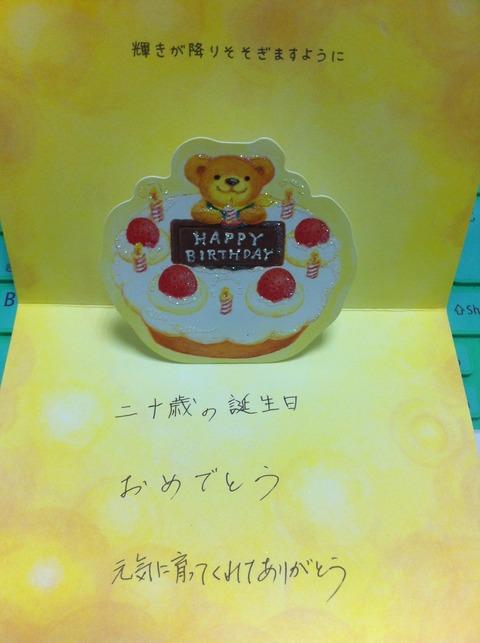 輝きが降りそそぎますように
HAPPY
BIRTHDAY
B
⇧Sh
二十歳の誕生日
おめでとう
元気に育ってくれてありがとう